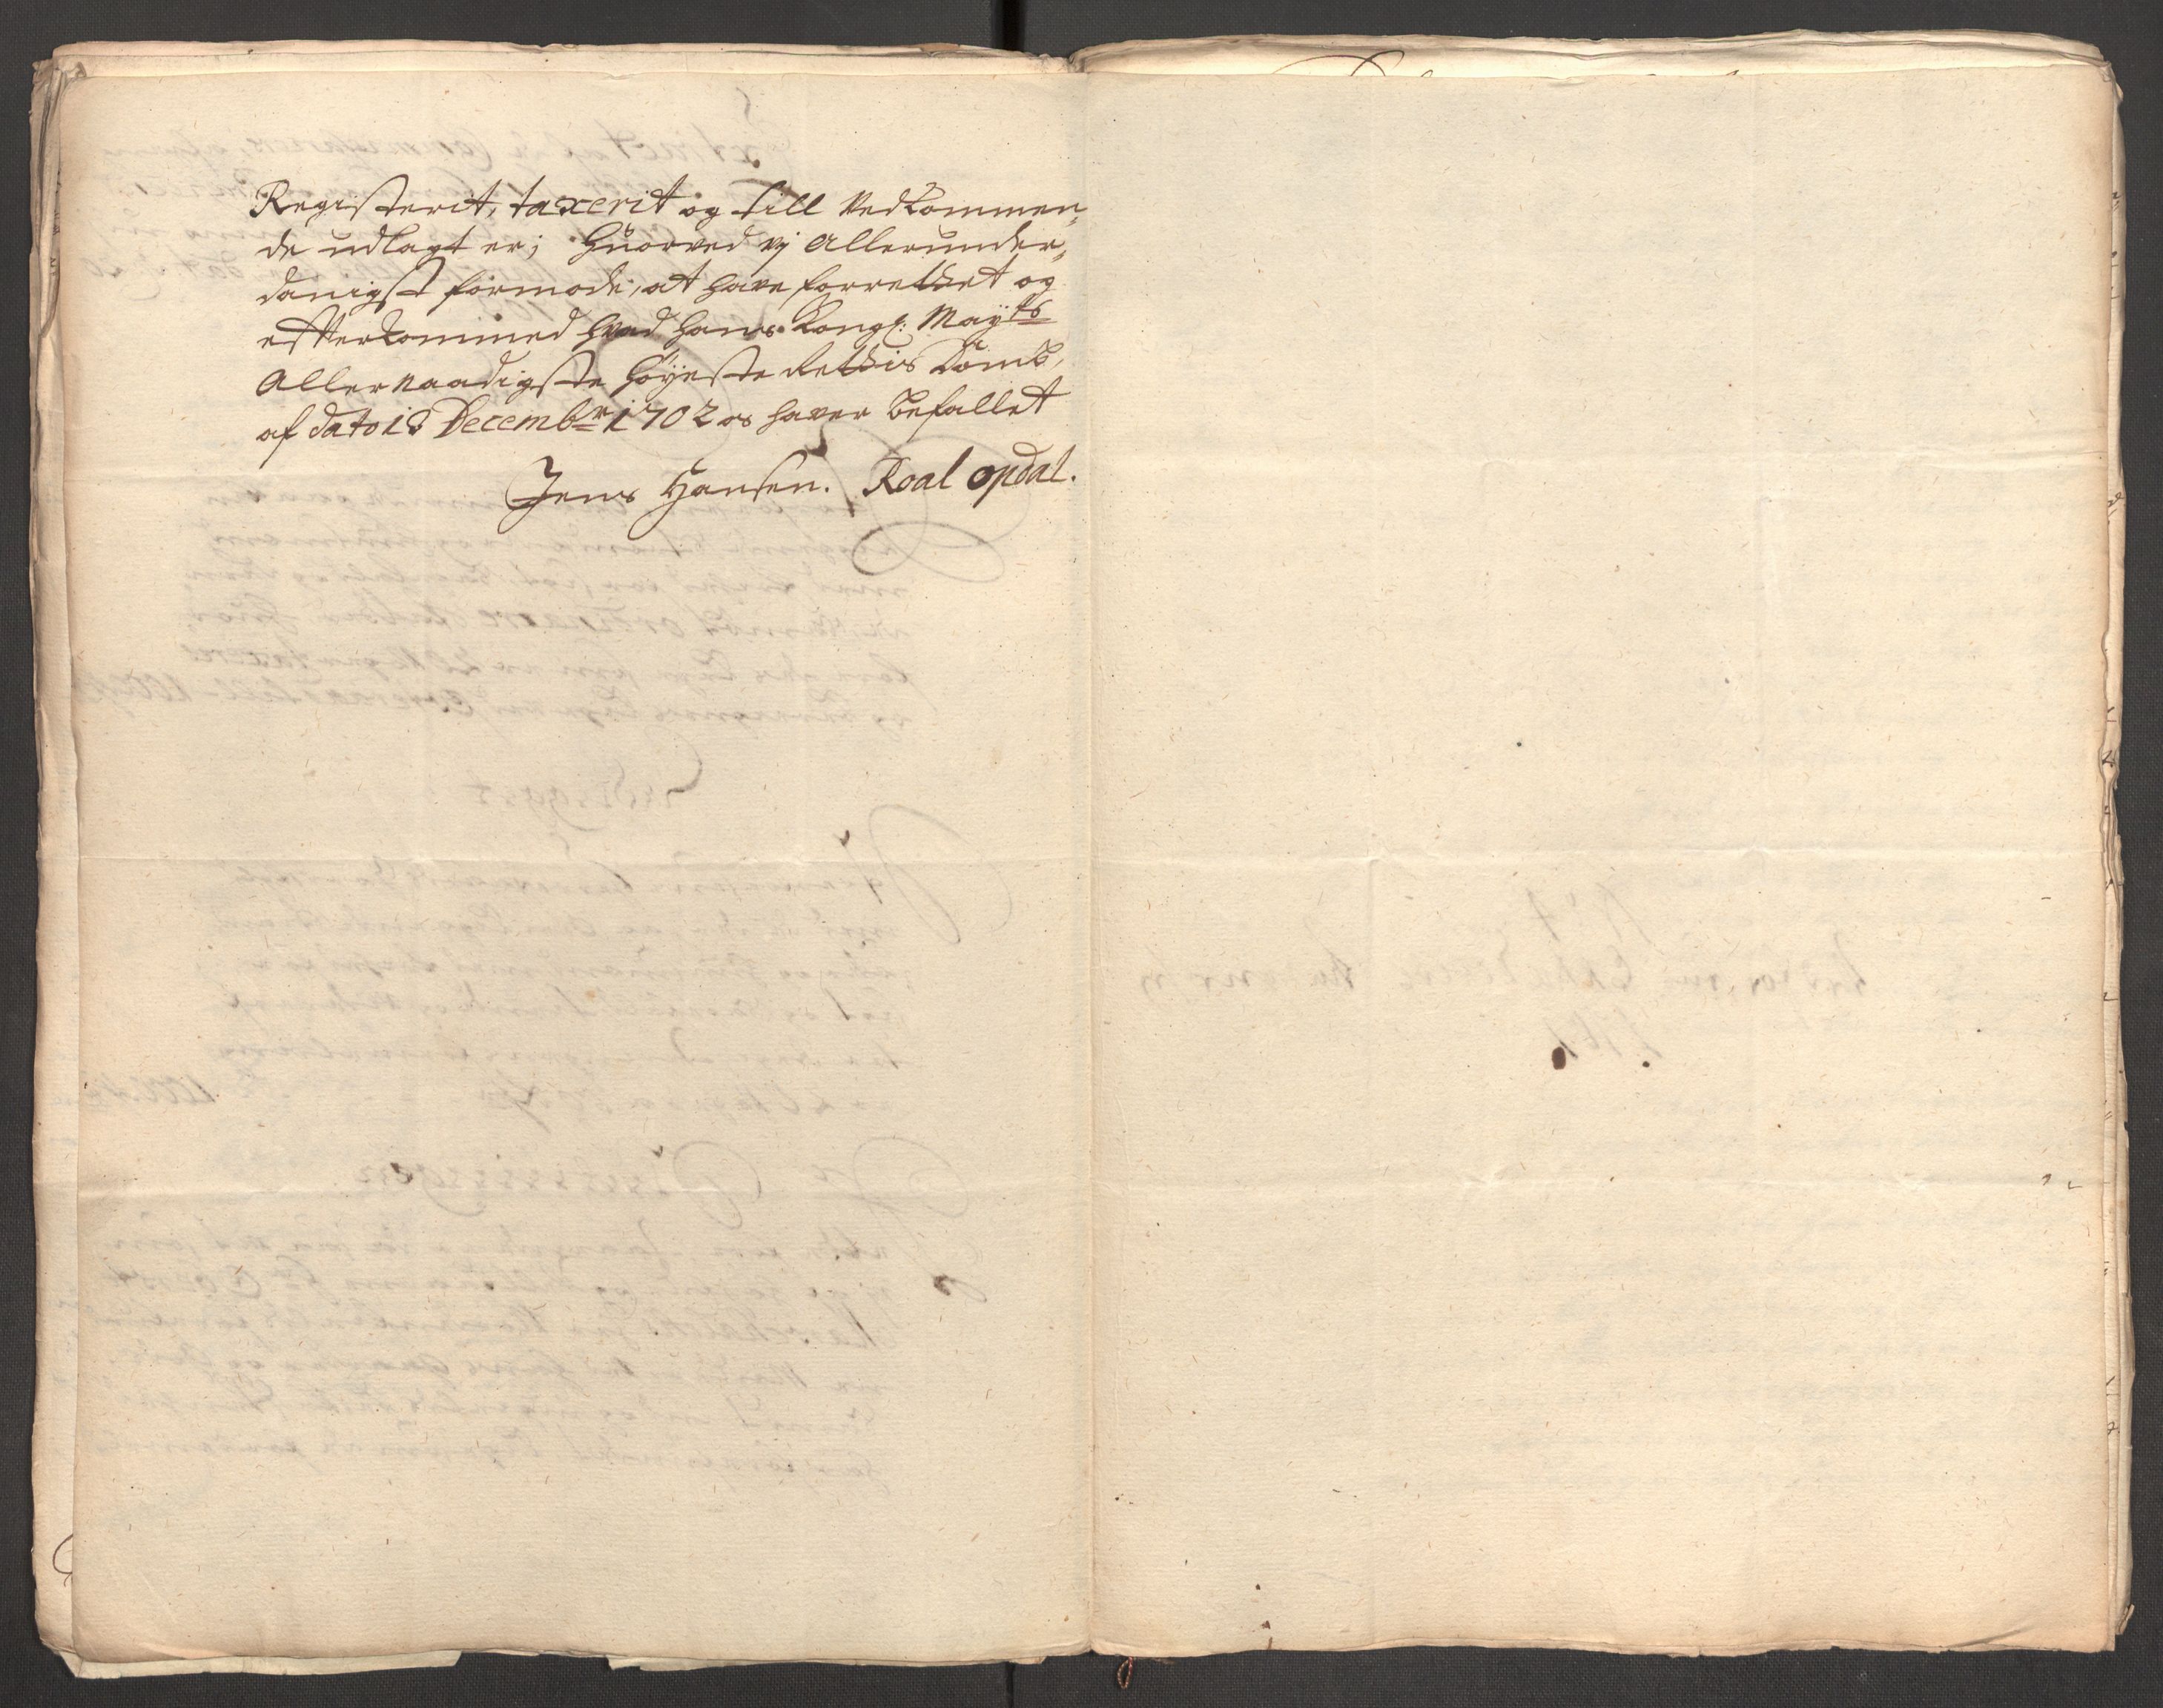 Registerit, taxerit og till Vedkommen,
de udlagt er; huorved vj Allerunder,
danigst formode, at have forrettet og
efterkommed hvad hans Kongl: Mayts
Allernaadigste Höyeste Rettis Domb,
af dato 18 Decembr 1702 os haver befallet
Jens Hansen. Roal Opdal.